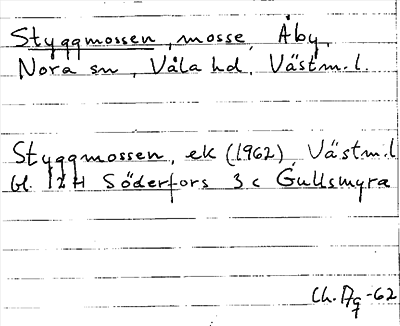 Styggmossen, mosse, Åby,
Nora sn, Våla hd, Västm. l.
Styggmossen, ek (1962), Västm. l
bl. 12 H Söderfors 3 c Gullsmyra
-62